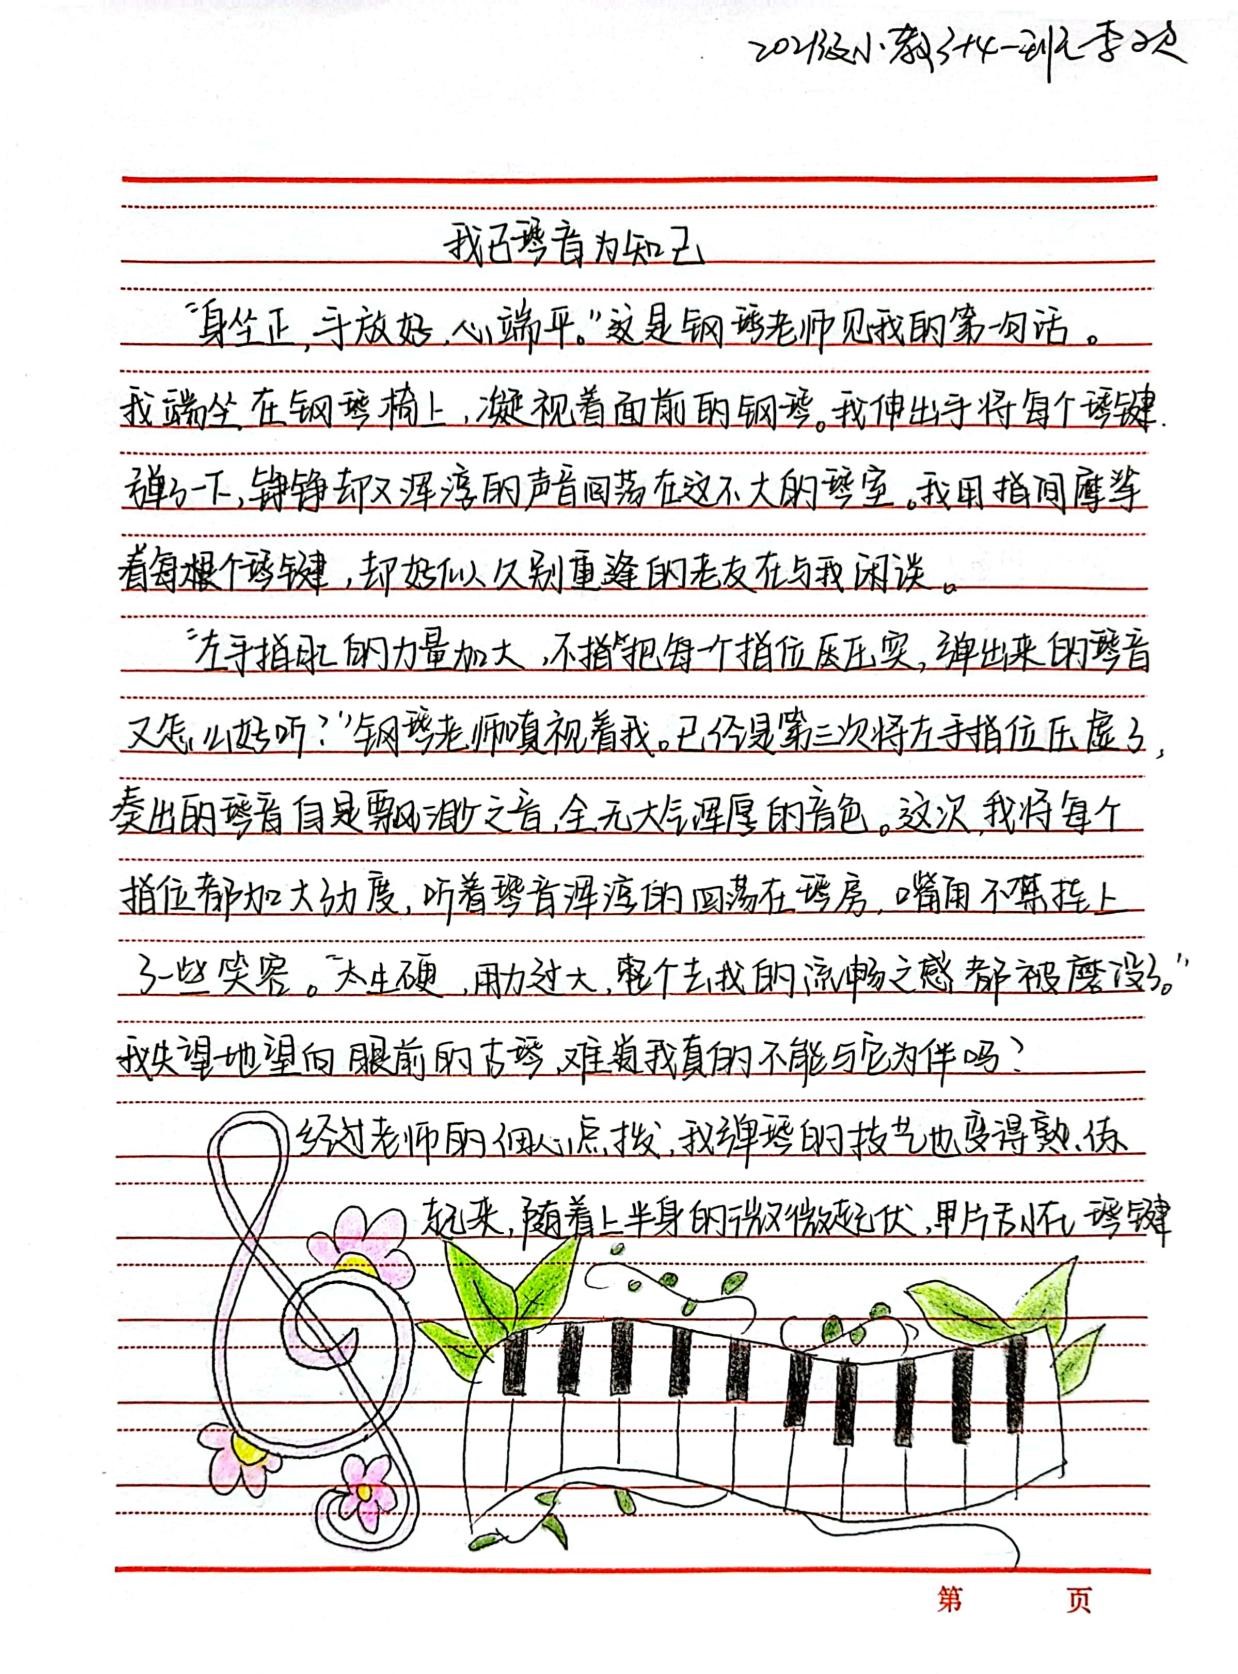 2021级小教3+4一班 李
我已琴音为知己
“身坐正，手放好，心端平。”这是钢琴老师见我的第一句话。
我端坐在钢琴椅上，凝视着面前的钢琴。我伸出手将每个琴键
弹了一下，铮铮却又浑淳的声音回荡在这不大的琴室。我用指间摩挲
着每根个琴键，却好似久别重逢的老友在与我闲谈。
“左手指 的力量加大，不 把每一个指位压压实，弹出来的琴音
又怎么好听？”钢琴老师嗔视着我。已经是第三次将左手指位压虚了，
奏出的琴音自是飘渺之音，全无大气浑厚的音色。这次，我将每个
指位都加大劲度，听着琴音浑淳的回荡在琴房，嘴角不禁挂上
了一些笑容。“太生硬，用力过大，整个古我的流畅之感都被磨没了。”
我失望地望向眼前的古琴，难道我真的不能与它为伴吗？
经过老师的细心点拨，我弹琴的技艺也变得熟练
起来，随着上半身的微微起伏，甲片刮在琴键
第 页